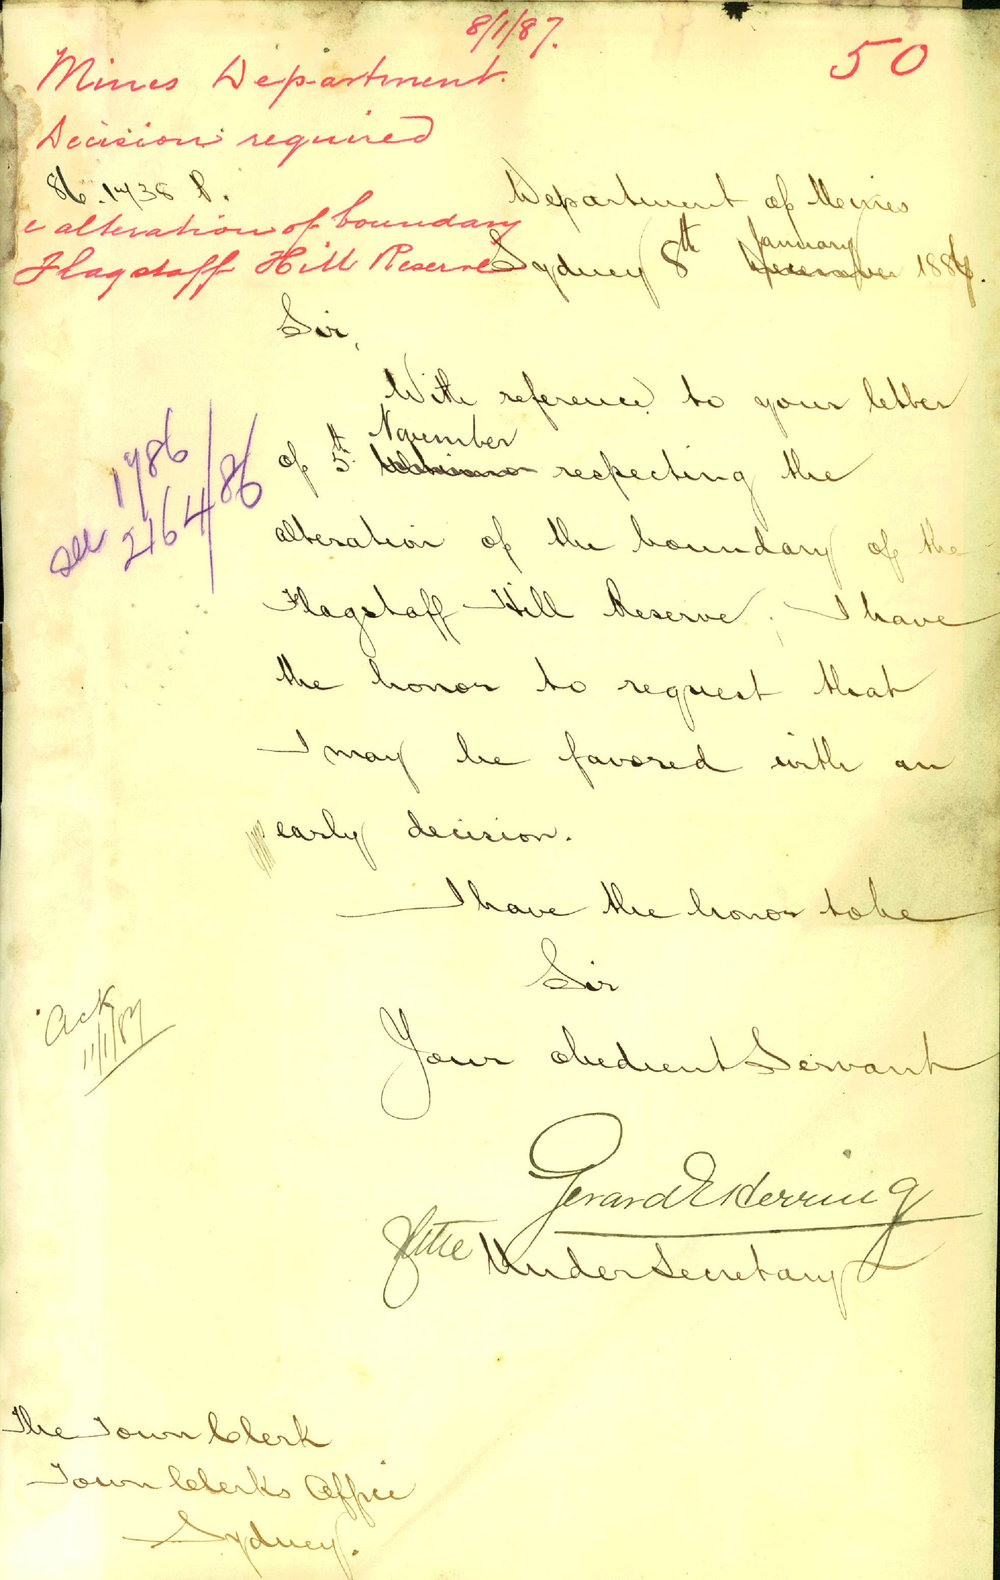 8/1/87.
50
Mines Department.
Decision required
86.1738 P.
alteration of boundary
Flagstaff Hill Reserve
Department of Mines
Sydney 8th January 188
Sir,
With reference to your letter
of 5th November respecting the
alteration of the boundary of the
Flagstaff Hill Reserve, I have
the honor to request that
I may be favored with an
early decision.
see 1786
2164/86
I have the honor to be
Sir
Your obedient Servant
Ack
11/1/87
Gerard E Herring
for the Under Secretary
The Town Clerk
Town Clerks Office
Sydney.